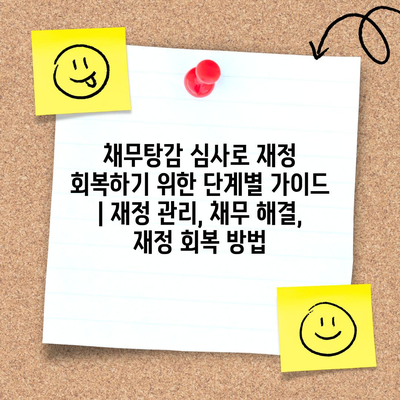 채무탕감 심사로 재정
회복하기 위한 단계별 가이드
| 재정 관리, 채무 해결,
재정 회복 방법